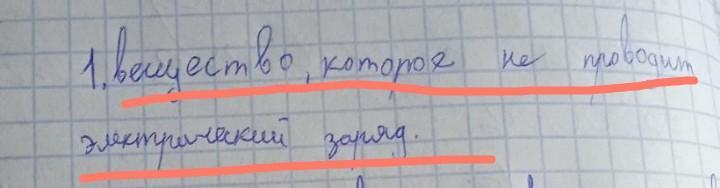 1. вещество, которое не проводит
электрический заряд.